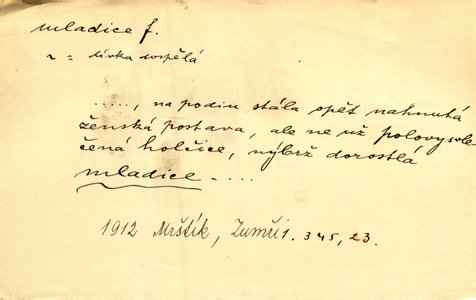 mladice f.
~ = dívka dospělá
....., na podiu stála opět nahnutá
ženská postava, ale ne už polovysvle
čená holčice, nýbrž dorostlá
mladice ....
1912 Mrštík, Zumři 1. 345, 23.